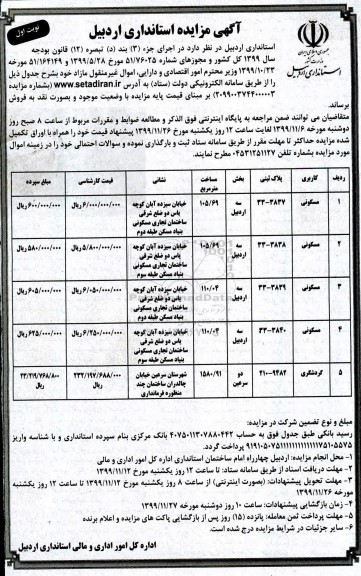 آگهی مزایده استانداری اردبیل
نوبت اول
جمهوری اسلامی ایران
وزارت کشور
استانداری اردبیل
استانداری اردبیل در نظر دارد در اجرای جزء (۳) بند (د) تبصره (۱۲) قانون بودجه
سال ۱۳۹۹ کل کشور و مجوزهای شماره ۵۱/۷۶۰۲۵ مورخ ۱۳۹۹/۵/۲۸ و ۵۱/۱۶۴۱۴۹ مورخه
۱۳۹۹/۱۰/۲۳ وزیر محترم امور اقتصادی و دارایی، اموال غیرمنقول مازاد خود بشرح جدول ذیل
را از طریق سامانه الکترونیکی دولت (ستاد) به آدرس www.setadiran.ir (بشماره مزایده
۲۰۹۹۰۰۳۷۴۴۰۰۰۰۰۳) بر مبنای قیمت پایه مزایده با وضعیت موجود و بصورت نقد به فروش
برساند.
متقاضیان می توانند ضمن مراجعه به پایگاه اینترنتی فوق الذکر و مطالعه ضوابط و مقررات مربوط از ساعت ۸ صبح روز
دوشنبه مورخه ۱۳۹۹/۱۱/۶ لغایت ساعت ۱۲ روز یکشنبه مورخ ۱۳۹۹/۱۱/۲۶ پیشنهاد قیمت خود را همراه با اوراق تکمیل
شده مزایده حداکثر تا مهلت مقرر از طریق سامانه ستاد ثبت و بارگذاری نموده و سوالات احتمالی خود را در زمینه اموال
مورد مزایده بشماره تلفن ۰۴۵۳۱۲۵۱۱۲۷ مطرح نمایند.
ردیف کاربری پلاک ثبتی بخش مساحت مترمربع نشانی قیمت کارشناسی مبلغ سپرده
۱ مسکونی ۳۳-۳۸۳۷ سه اردبیل ۱۰۵/۶۹ خیابان سیزده آبان کوچه یاس دو ضلع شرقی ساختمان تجاری مسکونی بنیاد مسکن طبقه دوم ۶/۰۰۰/۰۰۰/۰۰۰ ریال ۶۰۰/۰۰۰/۰۰۰ ریال
۲ مسکونی ۳۳-۳۸۳۸ سه اردبیل ۱۰۵/۶۹ خیابان سیزده آبان کوچه یاس دو ضلع شرقی ساختمان تجاری مسکونی بنیاد مسکن طبقه سوم ۵/۸۰۰/۰۰۰/۰۰۰ ریال ۵۸۰/۰۰۰/۰۰۰ ریال
۳ مسکونی ۳۳-۳۸۳۹ سه اردبیل ۱۱۰/۰۴ خیابان سیزده آبان کوچه یاس دو ضلع شرقی ساختمان تجاری مسکونی بنیاد مسکن طبقه دوم ۶/۰۵۰/۰۰۰/۰۰۰ ریال ۶۰۵/۰۰۰/۰۰۰ ریال
۴ مسکونی ۳۳-۳۸۴۰ سه اردبیل ۱۱۰/۰۴ خیابان سیزده آبان کوچه یاس دو ضلع شرقی ساختمان تجاری مسکونی بنیاد مسکن طبقه سوم ۶/۲۵۰/۰۰۰/۰۰۰ ریال ۶۲۵/۰۰۰/۰۰۰ ریال
۵ گردشگری ۲۱۰-۹۴۸۴ دو سرعین ۱۵۸۰/۹۱ شهرستان سرعین خیابان چالدران ساختمان چند منظوره فرمانداری ۲۳۲/۱۹۷/۶۸۸/۰۰۰ ریال ۲۳/۲۱۹/۷۶۸/۸۰۰ ریال
مبلغ و نوع تضمین شرکت در مزایده:
رسید بانکی طبق جدول فوق به حساب ۴۰۷۵۰۱۱۳۰۷۸۸۰۴۴۲ بانک مرکزی بنام سپرده استانداری و با شناسه واریز
پرداخت گردد.
۱- محل انجام مزایده: اردبیل چهارراه امام ساختمان استانداری اداره کل امور اداری و مالی
۲- مهلت دریافت اسناد از طریق سامانه ستاد: تا ساعت ۱۲ روز یکشنبه مورخ ۱۳۹۹/۱۱/۱۲
۳- مهلت تحویل پیشنهادات: (بصورت اینترنتی) از ساعت ۸ روز یکشنبه مورخ ۱۳۹۹/۱۱/۱۲ تا ساعت ۱۲ روز یکشنبه
مورخه ۱۳۹۹/۱۱/۲۶
۴- زمان بازگشایی پیشنهادات: ساعت ۱۰ روز دوشنبه مورخه ۱۳۹۹/۱۱/۲۷
۵- مهلت پرداخت ثمن معامله: پانزده (۱۵) روز پس از بازگشایی پاکت های مزایده و اعلام برنده
۶- سایر جزئیات در شرایط مزایده درج شده است.
اداره کل امور اداری و مالی استانداری اردبیل